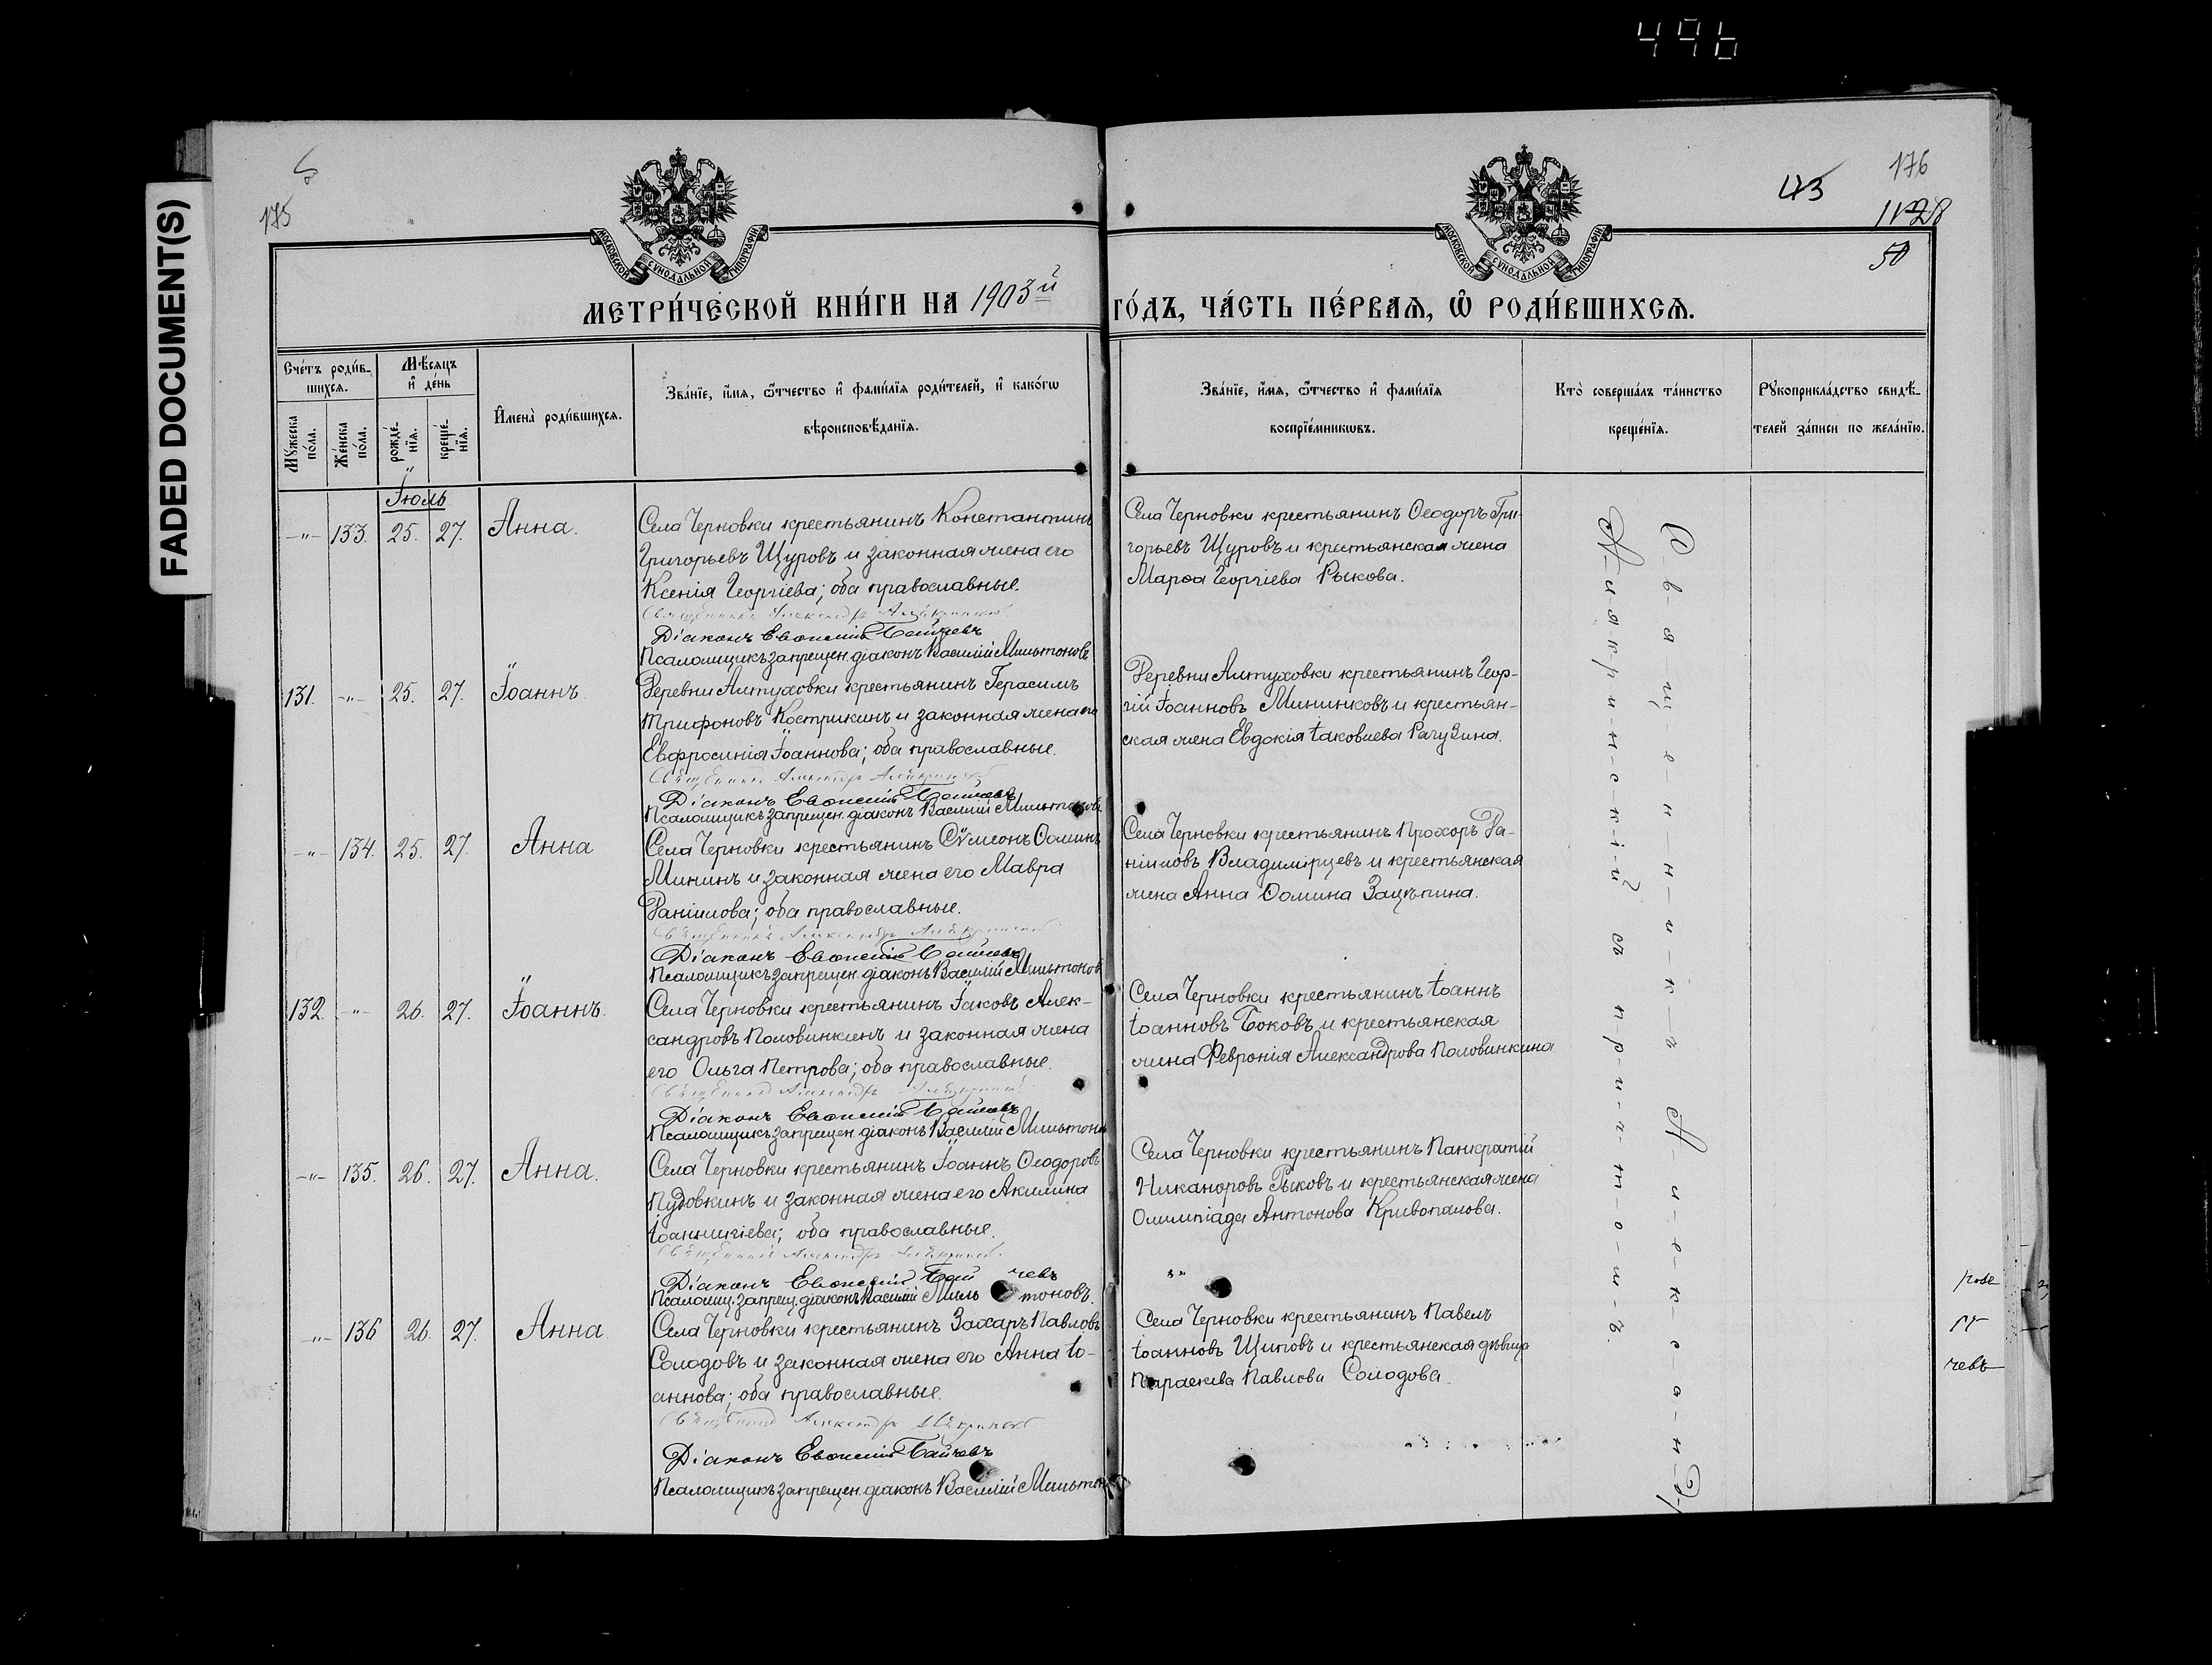 496
FADED DOCUMENT(S)
175
43
176
1128
50
МОСКОВСКОЙ СѴНОДАЛЬНОЙ ТИПОГРАФІИ
МОСКОВСКОЙ СѴНОДАЛЬНОЙ ТИПОГРАФІИ
МЕТРИ́ЧЕСКОЙ КНИ́ГИ НА 1903й ГО́ДЪ, ЧА́СТЬ ПЕ́РВАѦ, Ѡ РОДИ́ВШИХСѦ.
Сче́тъ роди́в-
шихсѧ.
Мꙋжеска по́ла.
Же́нска по́ла.
Мѣ́сѧцъ и де́нь
рожде́-
нїѧ.
креще́-
нїѧ.
Имена̀ роди́вшихсѧ.
Зва́нїе, и́мѧ, ѻ҆́тчество и фами́лїѧ роди́телей, и како́гѡ
вѣроисповѣ́данїѧ.
Зва́нїе, и́мѧ, ѻ҆́тчество и фами́лїѧ
воспрїе́мникѡвъ.
Кто̀ соверша́лъ та́инство
креще́нїѧ.
Рꙋкоприкла́дство свидѣ́-
телей за́писи по жела́нїю.
Іюль
-"- 133. 25. 27. Анна.
Села Черновки крестьянинъ Константинъ
Григорьевъ Щуровъ и законная жена его
Ксенія Георгіева; оба православные.
Священникъ Александръ
Діаконъ Евѳимій Байчевъ
Псаломщикъ запрещен. діаконъ Василій Мильтоновъ
Села Черновки крестьянинъ Ѳеодоръ Гри-
горьевъ Щуровъ и крестьянская жена
Марѳа Георгіева Рыкова.
131. -"- 25. 27. Іоаннъ.
Деревни Алтуховки крестьянинъ Герасимъ
Трифоновъ Кострикинъ и законная жена его
Евфросинія Іоаннова; оба православные.
Священникъ Александръ
Діаконъ Евѳимій Байчевъ
Псаломщикъ запрещен. діаконъ Василій Мильтоновъ
Деревни Алтуховки крестьянинъ Геор-
гій Іоанновъ Мининковъ и крестьян-
ская жена Евдокія Іаковлева Рагузина.
-"- 134. 25. 27. Анна
Села Черновки крестьянинъ Сѵмеонъ Ѳоминъ
Мининъ и законная жена его Мавра
Даніилова; оба православные.
Священникъ Александръ
Діаконъ Евѳимій Байчевъ
Псаломщикъ запрещен. діаконъ Василій Мильтонов
Села Черновки крестьянинъ Прохоръ Да-
ніиловъ Владимірцевъ и крестьянская
жена Анна Ѳомина Зацѣпина.
132. -"- 26. 27. Іоаннъ.
Села Черновки крестьянинъ Іаковъ Алек-
сандровъ Половинкинъ и законная жена
его Ольга Петрова; оба православные.
Священникъ Александръ
Діаконъ Евѳимій Байчевъ
Псаломщикъ запрещен. діаконъ Василій Мильтонов
Села Черновки крестьянинъ Іоаннъ
Іоанновъ Боковъ и крестьянская
жена Февронія Александрова Половинкина
-"- 135. 26. 27. Анна.
Села Черновки крестьянинъ Іоаннъ Ѳеодоровъ
Пудовкинъ и законная жена его Акилина
Іоанникіева; оба православные.
Священникъ Александръ
Діаконъ Евѳимій Бай чевъ
Псаломщ. запрещ. діаконъ Василій Миль тоновъ.
Села Черновки крестьянинъ Панкратій
Никаноровъ Рыковъ и крестьянская жена
Олимпіада Антонова Кривопалова.
-"- 136 26. 27. Анна
Села Черновки крестьянинъ Захаръ Павловъ
Солодовъ и законная жена его Анна Іо-
аннова; оба православные.
Священникъ Александръ
Діаконъ Евѳимій Байчевъ
Псаломщикъ запрещен. діаконъ Василій Мильтон
Села Черновки крестьянинъ Павелъ
Іоанновъ Щиповъ и крестьянская дѣвица
Параскева Павлова Солодова.
С-в-я-щ-е-н-н-и-к-ъ А-л-е-к-с-а-н-д-р
А-л-я-к-р-и-н-с-к-і-й съ п-р-и-ч-т-о-м-ъ.
чевъ